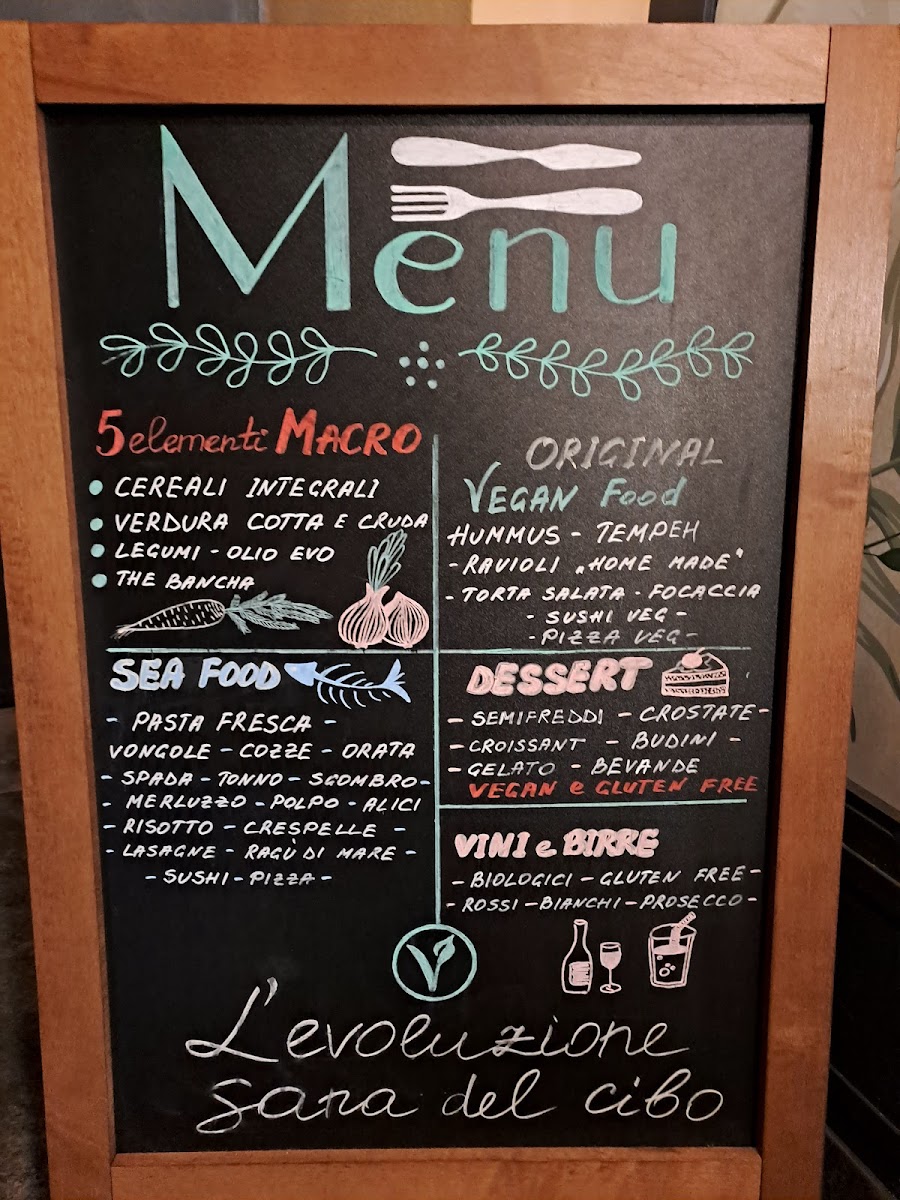 Menu
5 elementi MACRO
CEREALI INTEGRALI
VERDURA COTTA E CRUDA
LEGUMI - OLIO EVO
THE BANCHA
ORIGINAL
VEGAN Food
HUMMUS - TEMPEH
- RAVIOLI „HOME MADE"
- TORTA SALATA - FOCACCIA
- SUSHI VEG -
- PIZZA VEG -
SEA FOOD
- PASTA FRESCA -
VONGOLE - COZZE - ORATA
- SPADA - TONNO - SGOMBRO -
- MERLUZZO - POLPO - ALICI
- RISOTTO - CRESPELLE -
- LASAGNE - RAGÙ DI MARE -
- SUSHI - PIZZA -
DESSERT
- SEMIFREDDI - CROSTATE -
- CROISSANT - BUDINI -
- GELATO - BEVANDE
VEGAN e GLUTEN FREE
VINI e BIRRE
- BIOLOGICI - GLUTEN FREE -
- ROSSI - BIANCHI - PROSECCO -
V
L'evoluzione
sana del cibo